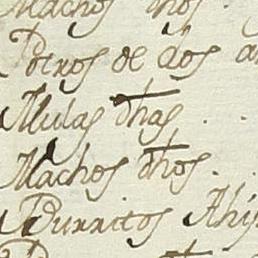 Machos dhos.
Potros de dos a
Mulas dhas . .
Machos dhos. .
Burritos Ahi